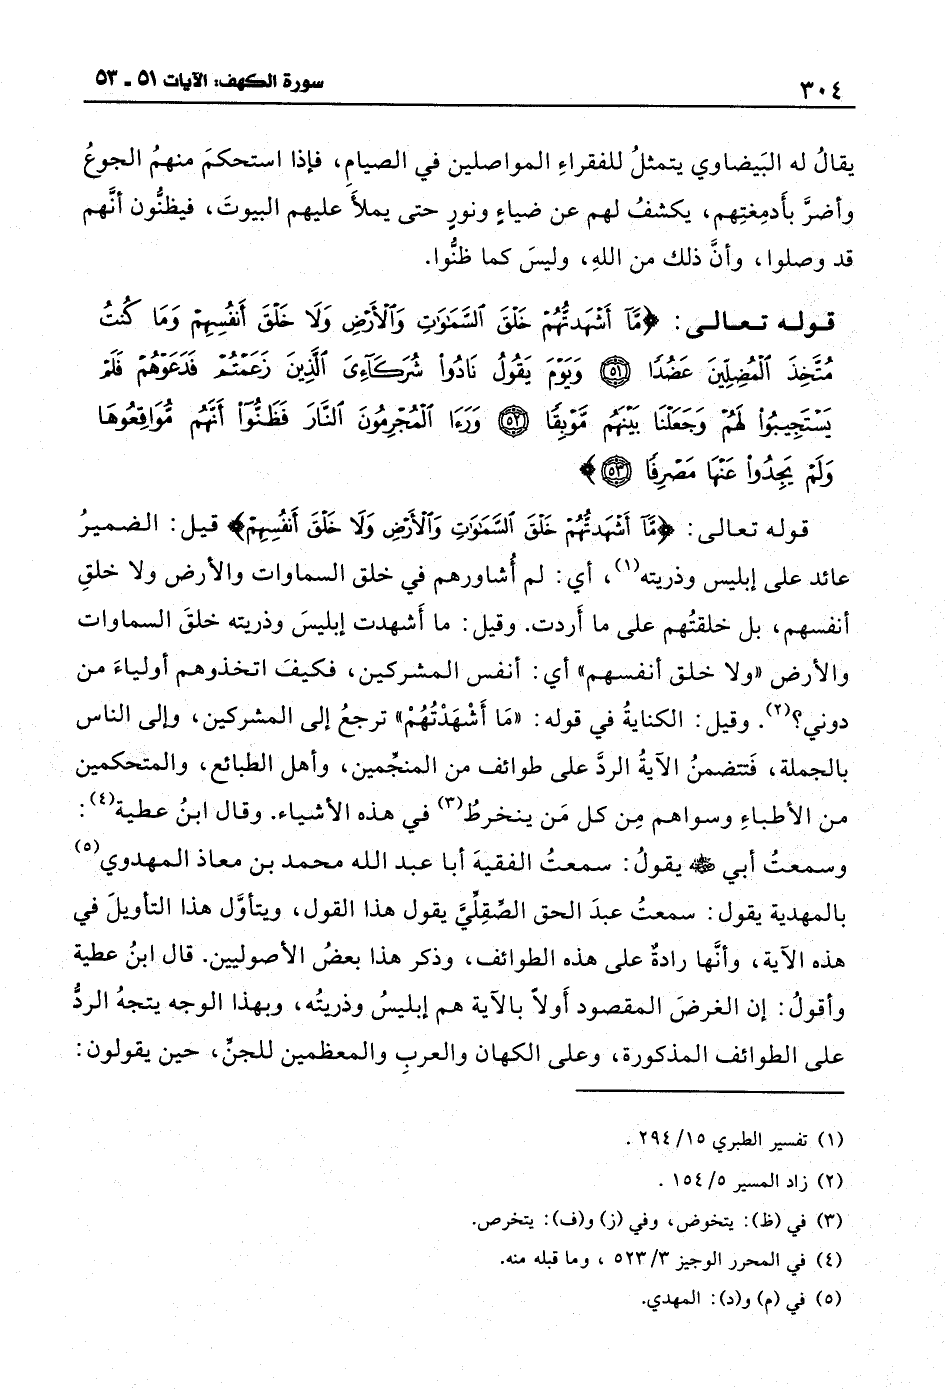 ٣٠٤
سورة الكهف: الآيات ٥١ - ٥٣
يقالُ له البَيضاوي يتمثلُ للفقراءِ المواصلين في الصيامِ، فإذا استحكمَ منهمُ الجوعُ
وأضرَّ بأَدمِغتِهم، يكشفُ لهم عن ضياءٍ ونورٍ حتى يملأَ عليهم البيوتَ، فيظنُّون أنَّهم
قد وصلوا، وأنَّ ذلك من اللهِ، وليسَ كما ظنُّوا.
قوله تعالى: ﴿مَّآ أَشْهَدتُّهُمْ خَلْقَ ٱلسَّمَٰوَٰتِ وَٱلْأَرْضِ وَلَا خَلْقَ أَنفُسِهِمْ وَمَا كُنتُ
مُتَّخِذَ ٱلْمُضِلِّينَ عَضُدًا ٥١ وَيَوْمَ يَقُولُ نَادُوا۟ شُرَكَآءِىَ ٱلَّذِينَ زَعَمْتُمْ فَدَعَوْهُمْ فَلَمْ
يَسْتَجِيبُوا۟ لَهُمْ وَجَعَلْنَا بَيْنَهُم مَّوْبِقًا ٥٢ وَرَءَا ٱلْمُجْرِمُونَ ٱلنَّارَ فَظَنُّوٓا۟ أَنَّهُم مُّوَاقِعُوهَا
وَلَمْ يَجِدُوا۟ عَنْهَا مَصْرِفًا ٥٣﴾
قوله تعالى: ﴿مَّآ أَشْهَدتُّهُمْ خَلْقَ ٱلسَّمَٰوَٰتِ وَٱلْأَرْضِ وَلَا خَلْقَ أَنفُسِهِمْ﴾ قيل: الضميرُ
عائد على إبليس وذريته(١)، أي: لم أُشاورهم في خلق السماوات والأرض ولا خلقِ
أنفسهم، بل خلقتُهم على ما أردت. وقيل: ما أَشهدت إبليسَ وذريته خلقَ السماوات
والأرض «ولا خلق أنفسهم» أي: أنفس المشركين، فكيفَ اتخذوهم أولياءَ من
دوني؟(٢). وقيل: الكنايةُ في قوله: «مَا أَشْهَدْتُهُمْ» ترجعُ إلى المشركين، وإلى الناس
بالجملة، فَتتضمنُ الآيةُ الردَّ على طوائف من المنجِّمين، وأهل الطبائع، والمتحكمين
من الأطباءِ وسواهم مِن كل مَن ينخرطُ(٣) في هذه الأشياء. وقال ابنُ عطية(٤):
وسمعتُ أبي ﷺ يقولُ: سمعتُ الفقيهَ أبا عبد الله محمد بن معاذ المهدوي(٥)
بالمهدية يقول: سمعتُ عبدَ الحق الصِّقِلِّيَّ يقول هذا القول، ويتأوَّل هذا التأويلَ في
هذه الآية، وأنَّها رادةٌ على هذه الطوائف، وذكر هذا بعضُ الأصوليين. قال ابنُ عطية
وأقولُ: إن الغرضَ المقصود أَولاً بالآية هم إبليسُ وذريتُه، وبهذا الوجه يتجهُ الردُّ
على الطوائف المذكورة، وعلى الكهان والعربِ والمعظمين للجنِّ، حين يقولون:
(١) تفسير الطبري ١٥/ ٢٩٤ .
(٢) زاد المسير ٥/ ١٥٤ .
(٣) في (ظ): يتخوض، وفي (ز) و(ف): يتخرص.
(٤) في المحرر الوجيز ٣/ ٥٢٣ ، وما قبله منه.
(٥) في (م) و(د): المهدي.